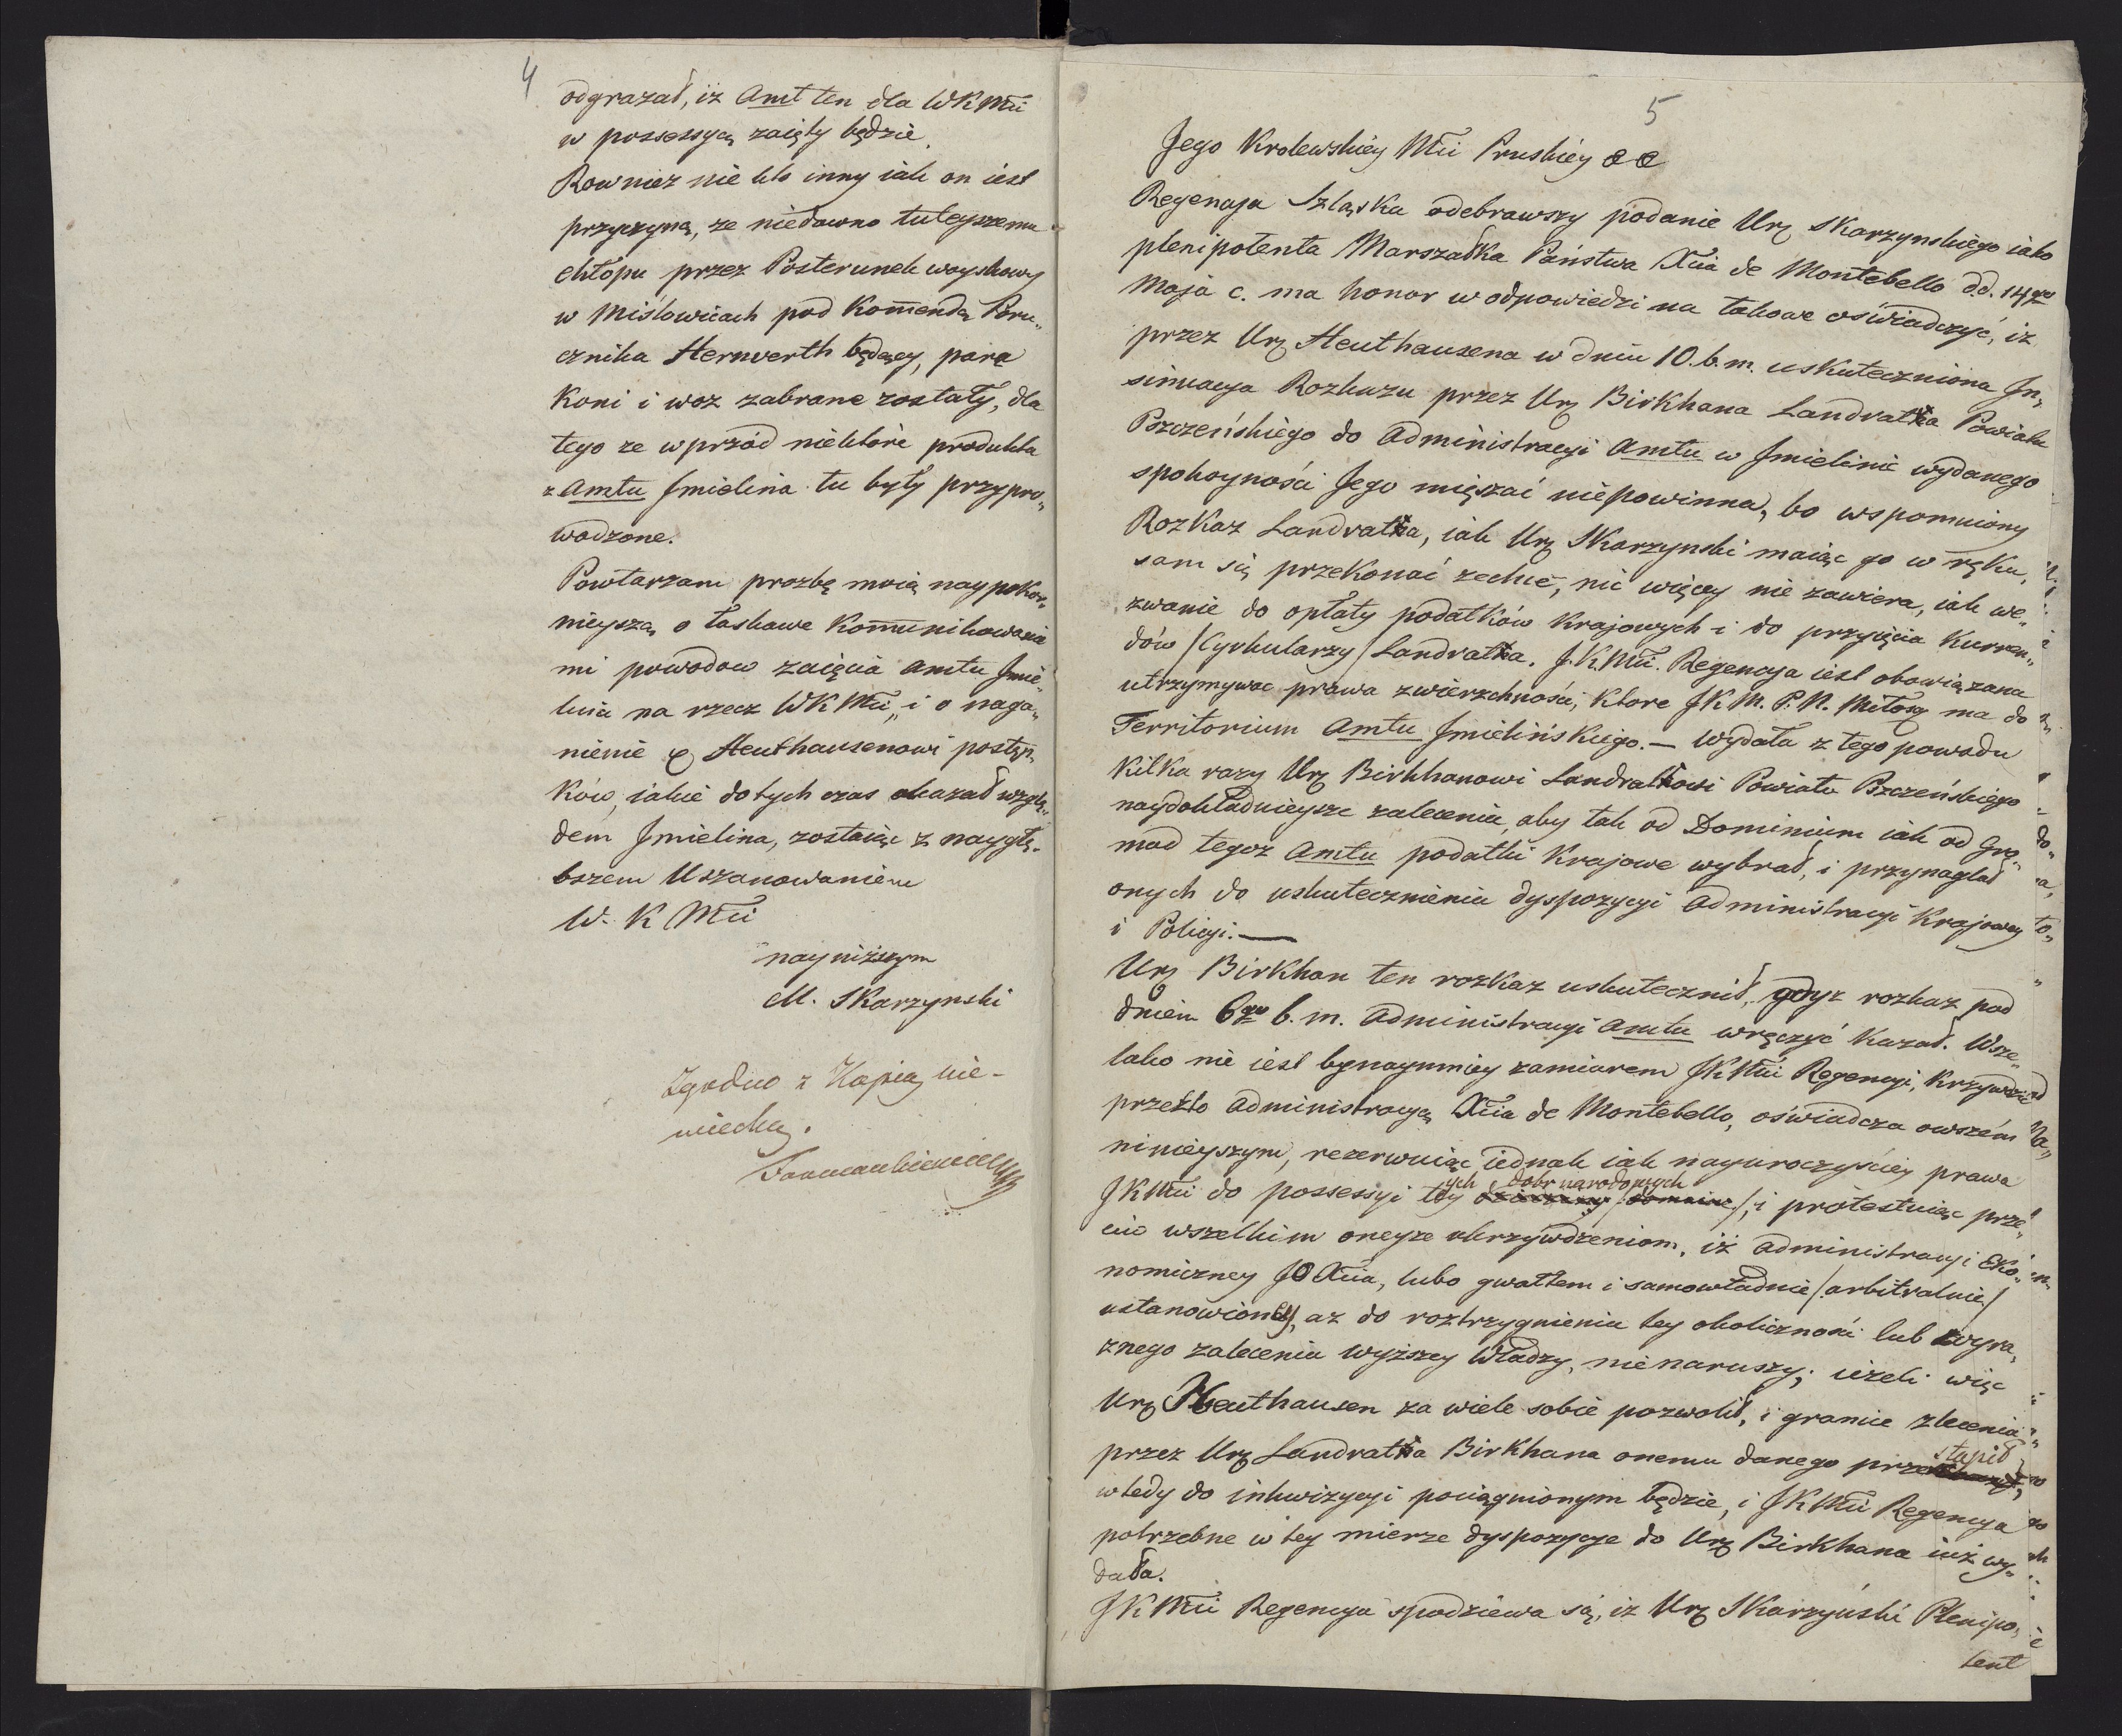 4
odgrazał, iż Amt ten dla WKMci
w possessyą zaięty będzie.
Rowniez nie kto inny iak on iest
przyczyną, ze niedawno tuteyszemu
chłopu przez Posterunek woyskowy
w Misłowicach pod Komendą Poru„
cznika Hernverth będący, para
Koni i woz zabrane zostały, dla
tego ze wprzód niektóre produkta
z Amtu Jmielina tu były przypro„
wadzone.
Powtarzam prozbę moią naypokor„
nieyszą o łaskawe Komunikowanie
mi powodow zaięcia Amtu Jmie„
lina na rzecz WKMci„ i o naga„
nienie Heuthausenowi postęp„
ków, iakie dotych czas okazał wzglę„
dem Jmielina, zostaiąc z naygłę„
bszem Uszanowaniem
W. K Mci
nayniższym
M. Skarzynski
Zgodno z Kopią nie-
miecką.
5
Jego Krolewskiey Mci Pruskiey
Regencya Szląska odebrawszy podanie Urz Skarzynskiego iako
plenipotenta Marszałka Państwa Xcia de Montebello d.d. 14go
Maja c. ma honor w odpowiedzi na takowe oświadczyć, iz
przez Urz Heuthausena w dniu 10. b. m. uskuteczniona In„
sinuacya Rozkazu przez Urz Birkhana Landrata Powiatu
Pszczeńskiego do Administracyi Amtu w Jmielinie wydanego
spokoyności Jego mięszać niepowinna, bo wspomniony
Rozkaz Landrata, iak Urz Skarzynski maiąc go w ręku,
sam się przekonać zechce, nic więcey nie zawiera, iak we„
zwanie do opłaty podatków Krajowych i do przyięcia Kurren„
dów /Cyrkularzy/ Landrata. J.K.Mci. Regencya iest obowiązana
utrzymywac prawa zwierzchności, Ktore JKM. P. N. Miłosz ma do
Territorium Amtu Jmielińskiego. — Wydała z tego powodu
Kilka razy Urz Birkhanowi Landratowi Powiatu Pszczeńskiego
naydokładnieysze zalecenia, aby tak od Dominium iak od Gro„
mad tegoz Amtu podatki Krajowe wybrał, i przynaglał
onych do uskutecznienia dyspozycyi Administracyi Krajowey
i Policyi. —
Urz Birkhan ten rozkaz uskutecznił, gdyz rozkaz pod
dniem 6go b. m. Administracyi Amtu wręczyć Kazał. Wsze„
lako nie iest bynaymniey zamiarem JKMci Regencyi, Krzywdzić
przeto Administracyą Xcia de Montebello, oświadcza owszem
ninieyszym, rezerwuiąc iednak iak nayuroczyściey prawa
JKMci do possessyi tych dobr narodowych, i protestuiąc prze„
ciw wszelkim oneyze ukrzywdzeniom, iż Administracyi Eko„
nomiczney JO Xcia, lubo gwałtem i samowładnie /arbitralnie/
ustanowioney, az do roztrzygnienia tey okoliczności lub wyra„
znego zalecenia wyższey Władzy, nienaruszy; ieżeli więc
Urz Heuthausen za wiele sobie pozwolił, i granice zlecenia
przez Urz Landrata Birkhana onemu danego przestąpił,
wtedy do inkwizycyi pociągnionym będzie, i JKMci Regencya
potrzebne w tey mierze dyspozycye do Urz Birkhana iuż wy„
dała.
JKMci Regencya spodziewa się, iz Urz Skarzyński Plenipo„
tent